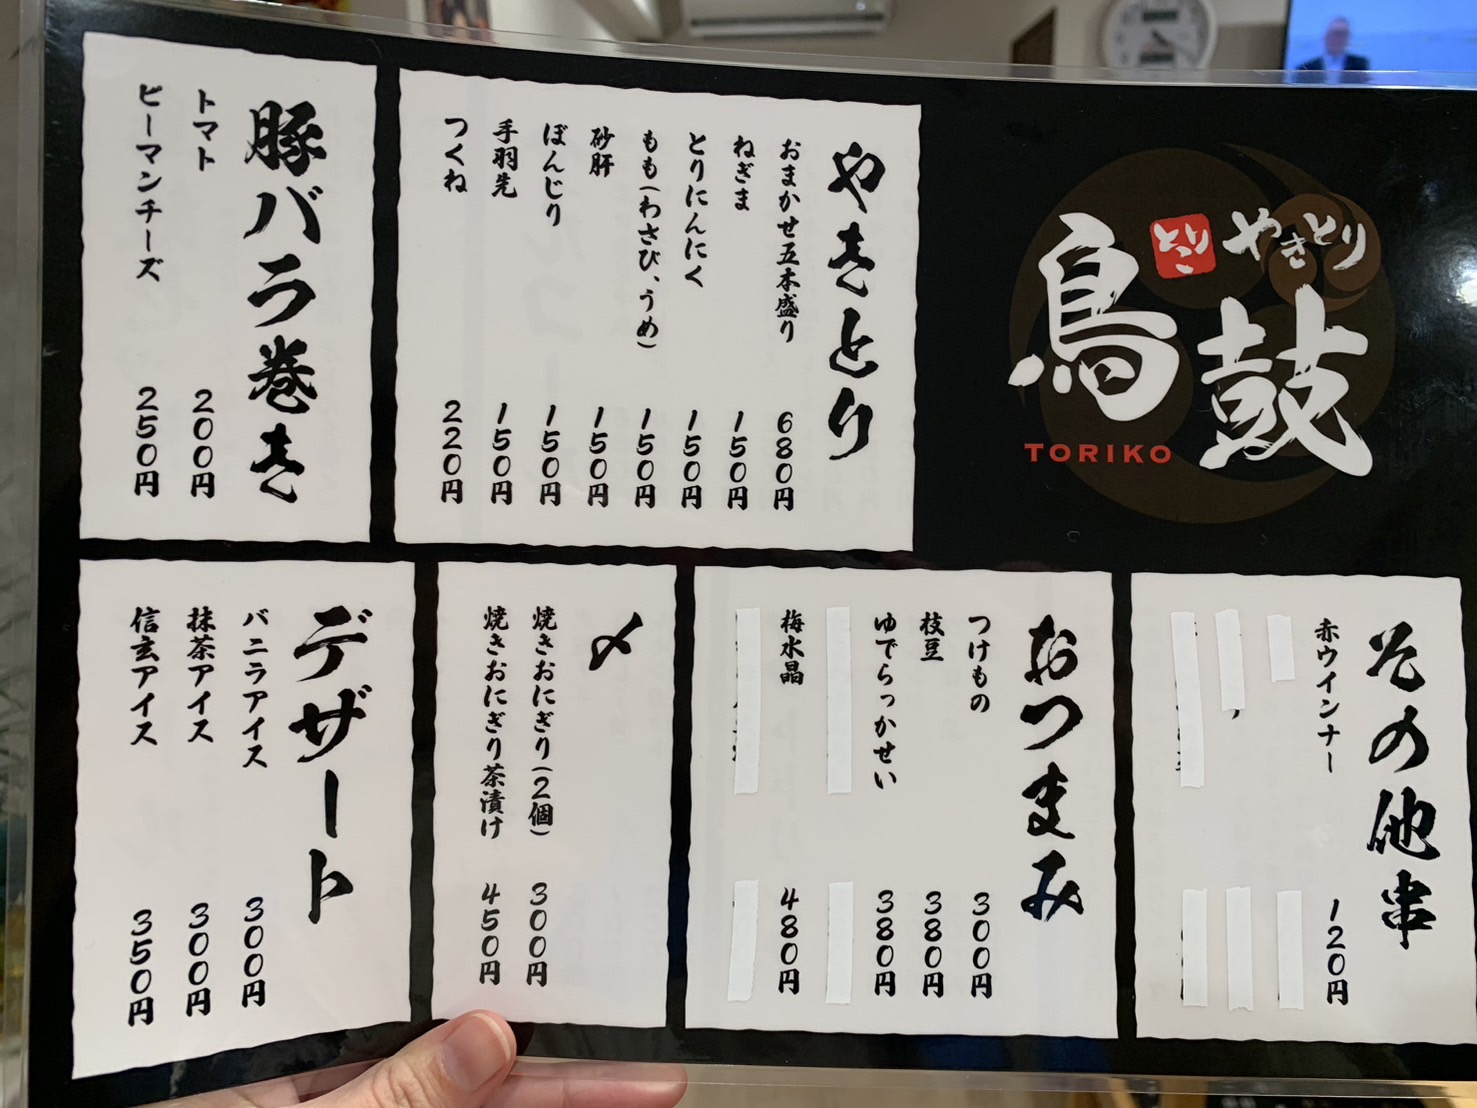 やきとり
とりこ
鳥鼓
TORIKO
やきとり
おまかせ五本盛り 680円
ねぎま 150円
とりにんにく 150円
もも(わさび、うめ) 150円
砂肝 150円
ぼんじり 150円
手羽先 150円
つくね 220円
豚バラ巻き
トマト 200円
ピーマンチーズ 250円
その他串
赤ウインナー 120円
おつまみ
つけもの 300円
枝豆 380円
ゆでらっかせい 380円
梅水晶 480円
〆
焼きおにぎり(2個) 300円
焼きおにぎり茶漬け 450円
デザート
バニラアイス 300円
抹茶アイス 300円
信玄アイス 350円